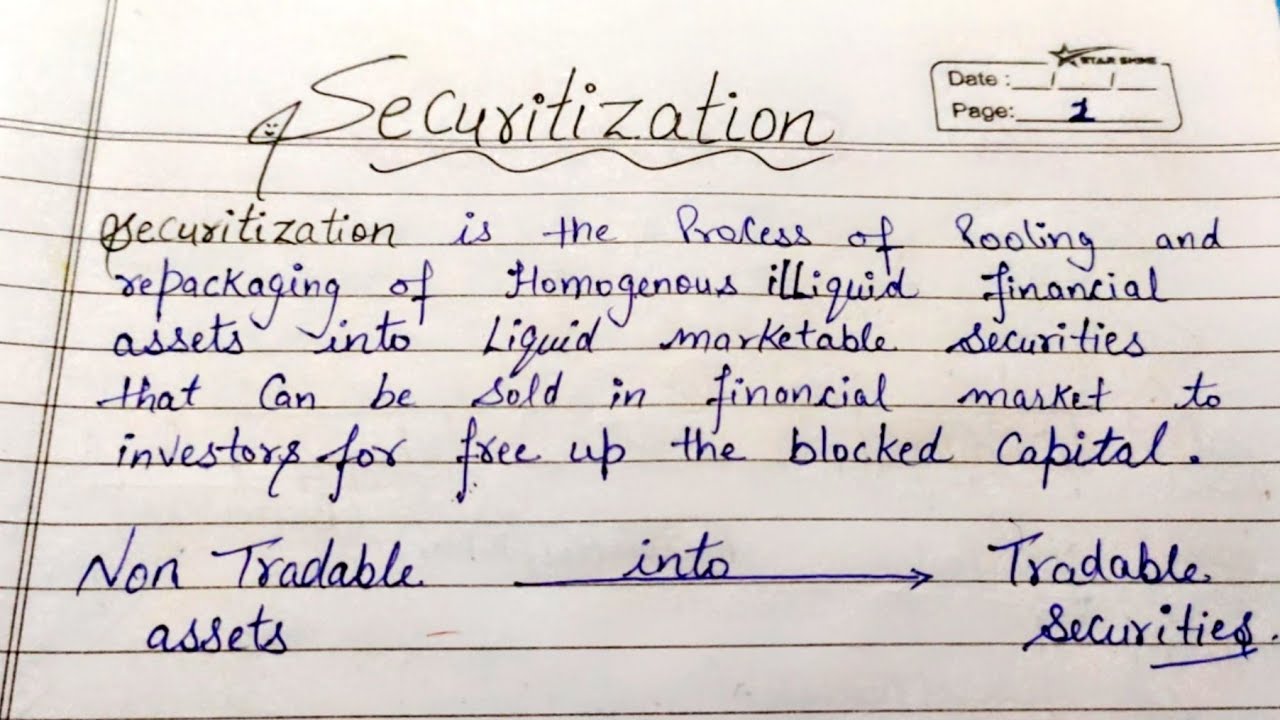 Securitization
STAR SHINE
Date : __/__/__
Page: 1
Securitization is the Process of Pooling and
repackaging of Homogenous illiquid financial
assets into Liquid marketable securities
that Can be sold in financial market to
investors for free up the blocked Capital.
Non Tradable into Tradable
assets securities.